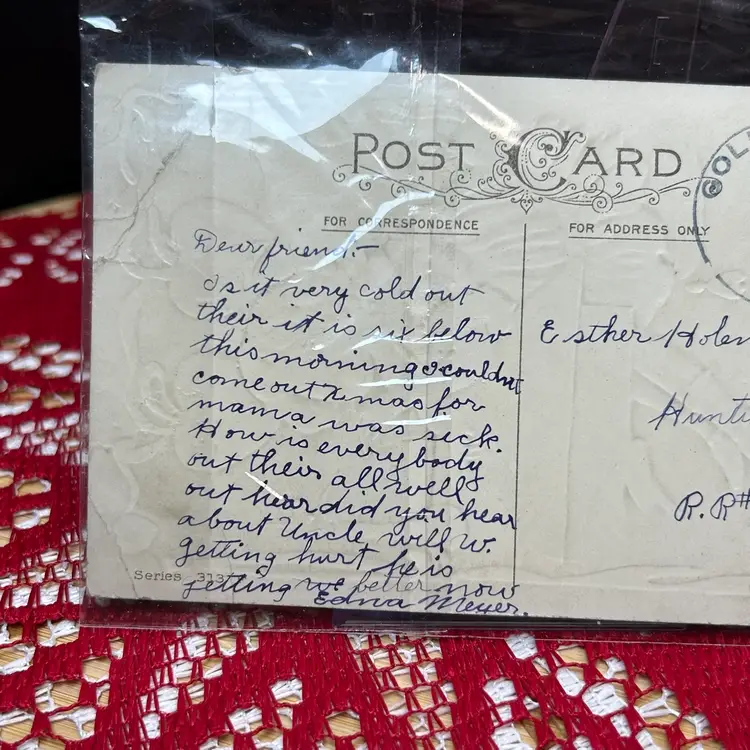 POST CARD
COL
FOR CORRESPONDENCE
FOR ADDRESS ONLY
Dear friend:-
Is it very cold out
their it is six below
this morning I couldnt
come out Xmas for
mama was sick.
How is everybody
out their all well
out hear did you hear
about Uncle Will W.
getting hurt he is
getting better now
Edna Meyer.
Series 313
Esther Holen
Hunti
R.R#